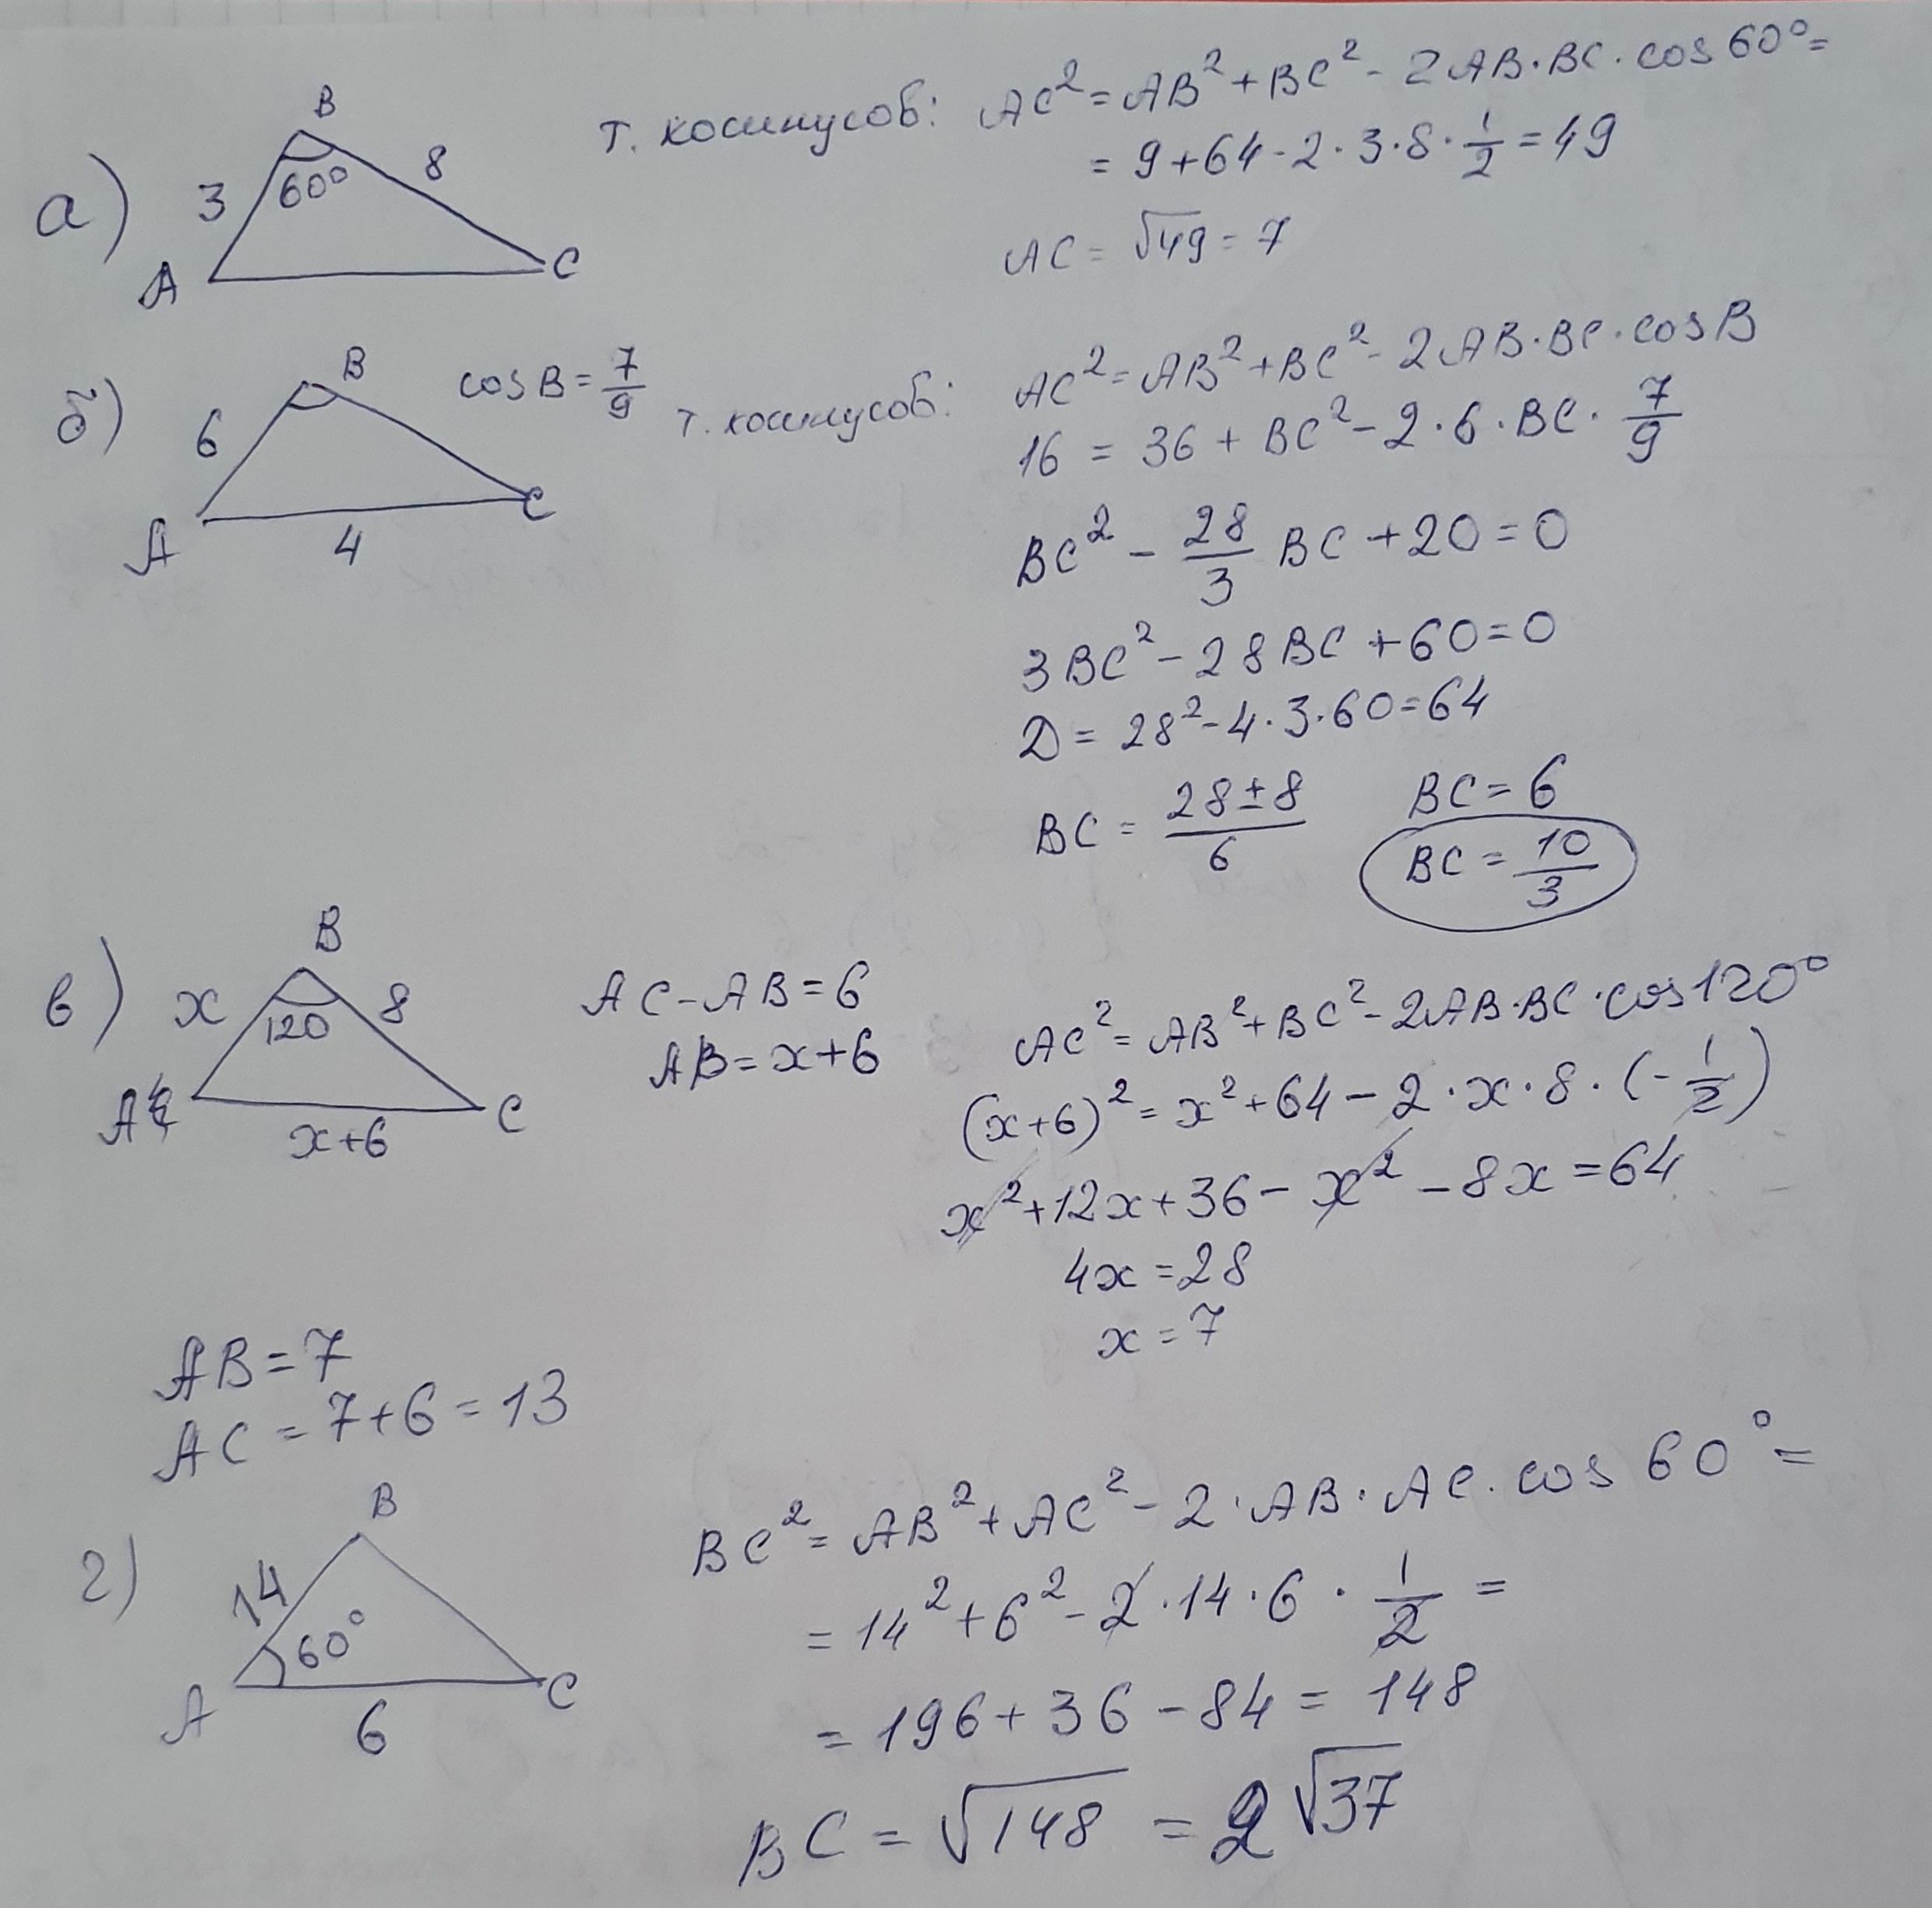 а)
B
3
60°
8
A
C
т. косинусов: AC² = AB² + BC² - 2AB·BC·cos 60° =
= 9 + 64 - 2·3·8·1/2 = 49
AC = √49 = 7
б)
B
6
A
4
C
cos B = 7/9
т. косинусов: AC² = AB² + BC² - 2AB·BC·cos B
16 = 36 + BC² - 2·6·BC·7/9
BC² - 28/3 BC + 20 = 0
3BC² - 28BC + 60 = 0
D = 28² - 4·3·60 = 64
BC = (28 ± 8)/6
BC = 6
BC = 10/3
в)
B
x
120
8
A
x+6
C
AC - AB = 6
AB = x + 6
AC² = AB² + BC² - 2AB·BC·cos 120°
(x+6)² = x² + 64 - 2·x·8·(-1/2)
x² + 12x + 36 - x² - 8x = 64
4x = 28
x = 7
AB = 7
AC = 7 + 6 = 13
г)
B
14
60°
A
6
C
BC² = AB² + AC² - 2·AB·AC·cos 60° =
= 14² + 6² - 2·14·6·1/2 =
= 196 + 36 - 84 = 148
BC = √148 = 2√37